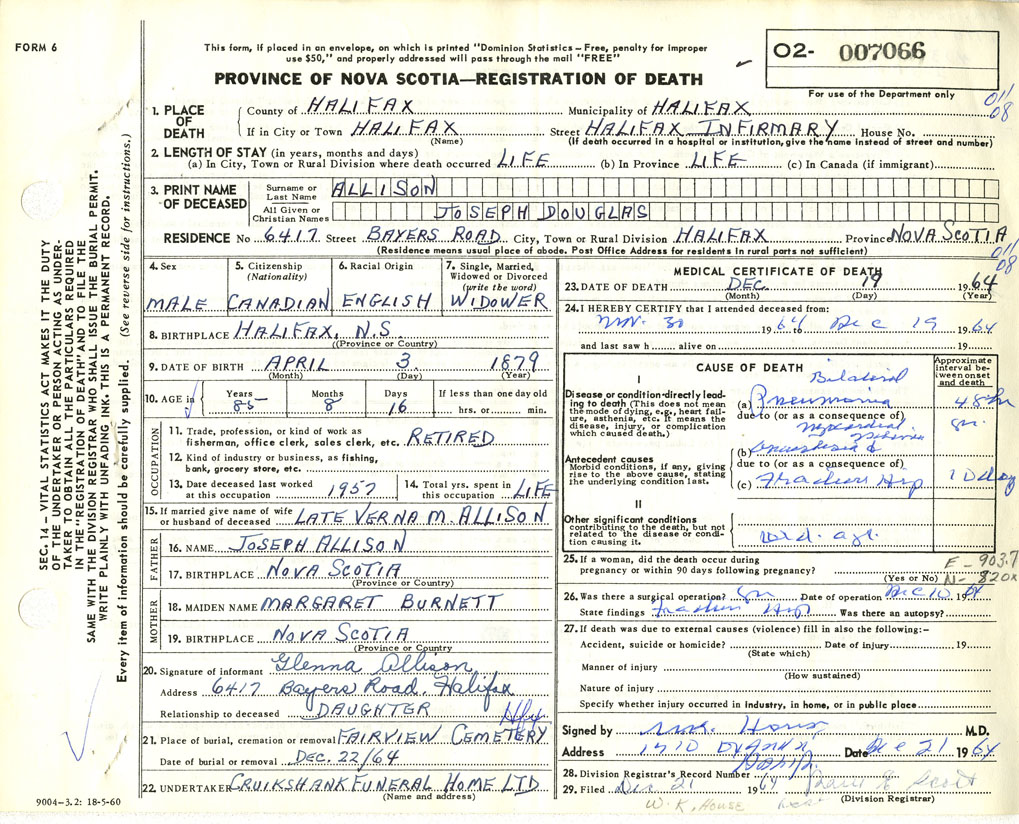 FORM 6
This form, if placed in an envelope, on which is printed "Dominion Statistics – Free, penalty for improper
use $50," and properly addressed will pass through the mail "FREE"
PROVINCE OF NOVA SCOTIA—REGISTRATION OF DEATH
02- 007066
For use of the Department only
011
08
1. PLACE OF DEATH
County of HALIFAX Municipality of HALIFAX
If in City or Town HALIFAX Street HALIFAX INFIRMARY House No.
(Name) (If death occurred in a hospital or institution, give the name instead of street and number)
2. LENGTH OF STAY (in years, months and days)
(a) In City, Town or Rural Division where death occurred LIFE (b) In Province LIFE (c) In Canada (if immigrant)
3. PRINT NAME OF DECEASED
Surname or Last Name ALLISON
All Given or Christian Names JOSEPH DOUGLAS
RESIDENCE No 6417 Street BAYERS ROAD City, Town or Rural Division HALIFAX Province NOVA SCOTIA
(Residence means usual place of abode. Post Office Address for residents in rural parts not sufficient)
011
08
4. Sex
MALE
5. Citizenship
(Nationality)
CANADIAN
6. Racial Origin
ENGLISH
7. Single, Married,
Widowed or Divorced
(write the word)
WIDOWER
8. BIRTHPLACE HALIFAX, N.S
(Province or Country)
9. DATE OF BIRTH APRIL 3 1879
(Month) (Day) (Year)
10. AGE in
Years Months Days If less than one day old
85 8 16 hrs. or min.
OCCUPATION
11. Trade, profession, or kind of work as
fisherman, office clerk, sales clerk, etc. RETIRED
12. Kind of industry or business, as fishing,
bank, grocery store, etc.
13. Date deceased last worked
at this occupation 1957
14. Total yrs. spent in
this occupation LIFE
15. If married give name of wife
or husband of deceased LATE VERNA M. ALLISON
FATHER
16. NAME JOSEPH ALLISON
17. BIRTHPLACE NOVA SCOTIA
(Province or Country)
MOTHER
18. MAIDEN NAME MARGARET BURNETT
19. BIRTHPLACE NOVA SCOTIA
(Province or Country)
20. Signature of informant Glenna Allison
Address 6417 Bayers Road, Halifax
Relationship to deceased DAUGHTER
Hfx
21. Place of burial, cremation or removal FAIRVIEW CEMETERY
Date of burial or removal DEC. 22/64
22. UNDERTAKER CRUIKSHANK FUNERAL HOME LTD
(Name and address)
MEDICAL CERTIFICATE OF DEATH
23. DATE OF DEATH DEC. 19 1964
(Month) (Day) (Year)
24. I HEREBY CERTIFY that I attended deceased from:
Nov. 30 1964 to Dec 19 1964
and last saw h alive on 19
CAUSE OF DEATH
Approximate
interval between onset
and death
I
Disease or condition directly leading to death (This does not mean
the mode of dying, e.g., heart failure, asthenia, etc. It means the
disease, injury, or complication
which caused death.)
Bilateral
(a) Pneumonia 48 hr
due to (or as a consequence of)
Myocardial
(b)
Antecedent causes
Morbid conditions, if any, giving
rise to the above cause, stating
the underlying condition last.
due to (or as a consequence of)
(c) Fracture Hip 10 day
II
Other significant conditions
contributing to the death, but not
related to the disease or condition causing it.
old age
25. If a woman, did the death occur during
pregnancy or within 90 days following pregnancy?
(Yes or No)
E - 903.7
N - 820X
26. Was there a surgical operation? Date of operation Dec 10 19
State findings Fracture Hip Was there an autopsy?
27. If death was due to external causes (violence) fill in also the following:–
Accident, suicide or homicide? Date of injury 19
(State which)
Manner of injury
(How sustained)
Nature of injury
Specify whether injury occurred in industry, in home, or in public place
Signed by House M.D.
Address Date Dec 21 1964
28. Division Registrar's Record Number
29. Filed Dec 21 1964
W. K. HOUSE
(Division Registrar)
9004-3.2: 18-5-60
SEC. 14 – VITAL STATISTICS ACT MAKES IT THE DUTY
OF THE UNDERTAKER OR PERSON ACTING AS UNDERTAKER TO OBTAIN ALL THE PARTICULARS REQUIRED
IN THE "REGISTRATION OF DEATH" AND TO FILE THE
SAME WITH THE DIVISION REGISTRAR WHO SHALL ISSUE THE BURIAL PERMIT.
WRITE PLAINLY WITH UNFADING INK. THIS IS A PERMANENT RECORD.
Every item of information should be carefully supplied. (See reverse side for instructions.)